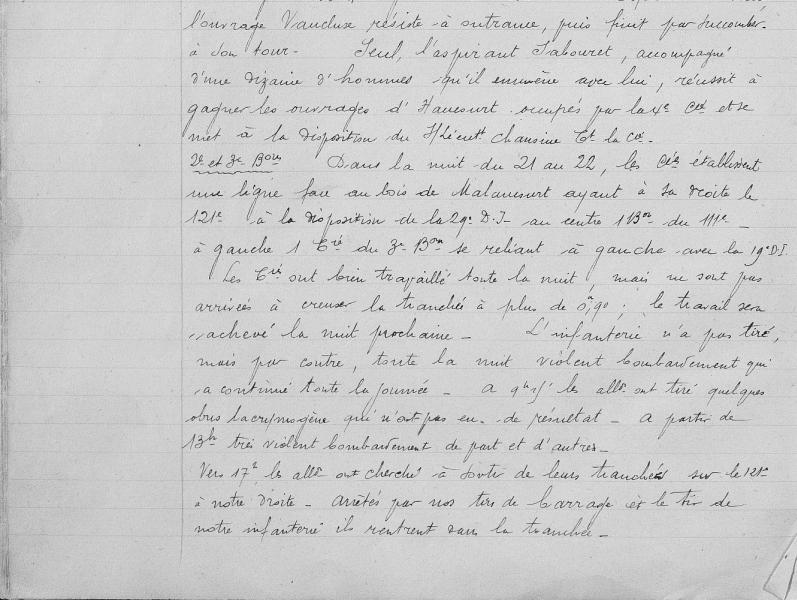 l'ouvrage Vaucluse résiste à outrance, puis finit par succomber
à son tour. Seul, l'aspirant Sabouret, accompagné
d'une dizaine d'hommes qu'il emmène avec lui, réussit à
gagner les ouvrages d'Haucourt occupés par la 4e Cie et se
met à la disposition du Lieutt Chansine Ct la Cie.
2e et 3e Bons Dans la nuit du 21 au 22, les Cies établissent
une ligne face au bois de Malancourt ayant à sa droite le
121e à la disposition de la 29e D.I. au centre 1 Bon du 111e -
à gauche 1 Cie du 3e Bon se reliant à gauche avec la 19e D.I.
Les Cies ont bien travaillé toute la nuit, mais ne sont pas
arrivées à creuser la tranchée à plus de 0m,90 ; le travail sera
achevé la nuit prochaine - L'infanterie n'a pas tiré,
mais par contre, toute la nuit violent bombardement qui
a continué toute la journée - A les allds ont tiré quelques
obus lacrymogène qui n'ont pas eu de résultat - A partir de
13h très violent bombardement de part et d'autres -
Vers 17h les allds ont cherché à sortir de leurs tranchées sur le 121e
à notre droite - Arrêtés par nos tirs de barrage et le tir de
notre infanterie ils rentrent dans la tranchée -